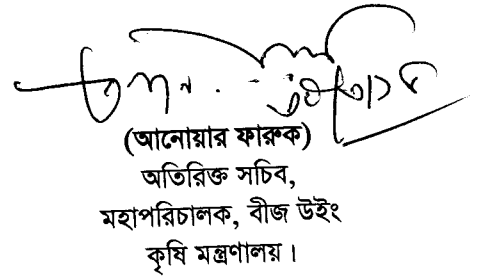 (আনোয়ার ফারুক)
অতিরিক্ত সচিব,
মহাপরিচালক, বীজ উইং
কৃষি মন্ত্রণালয়।